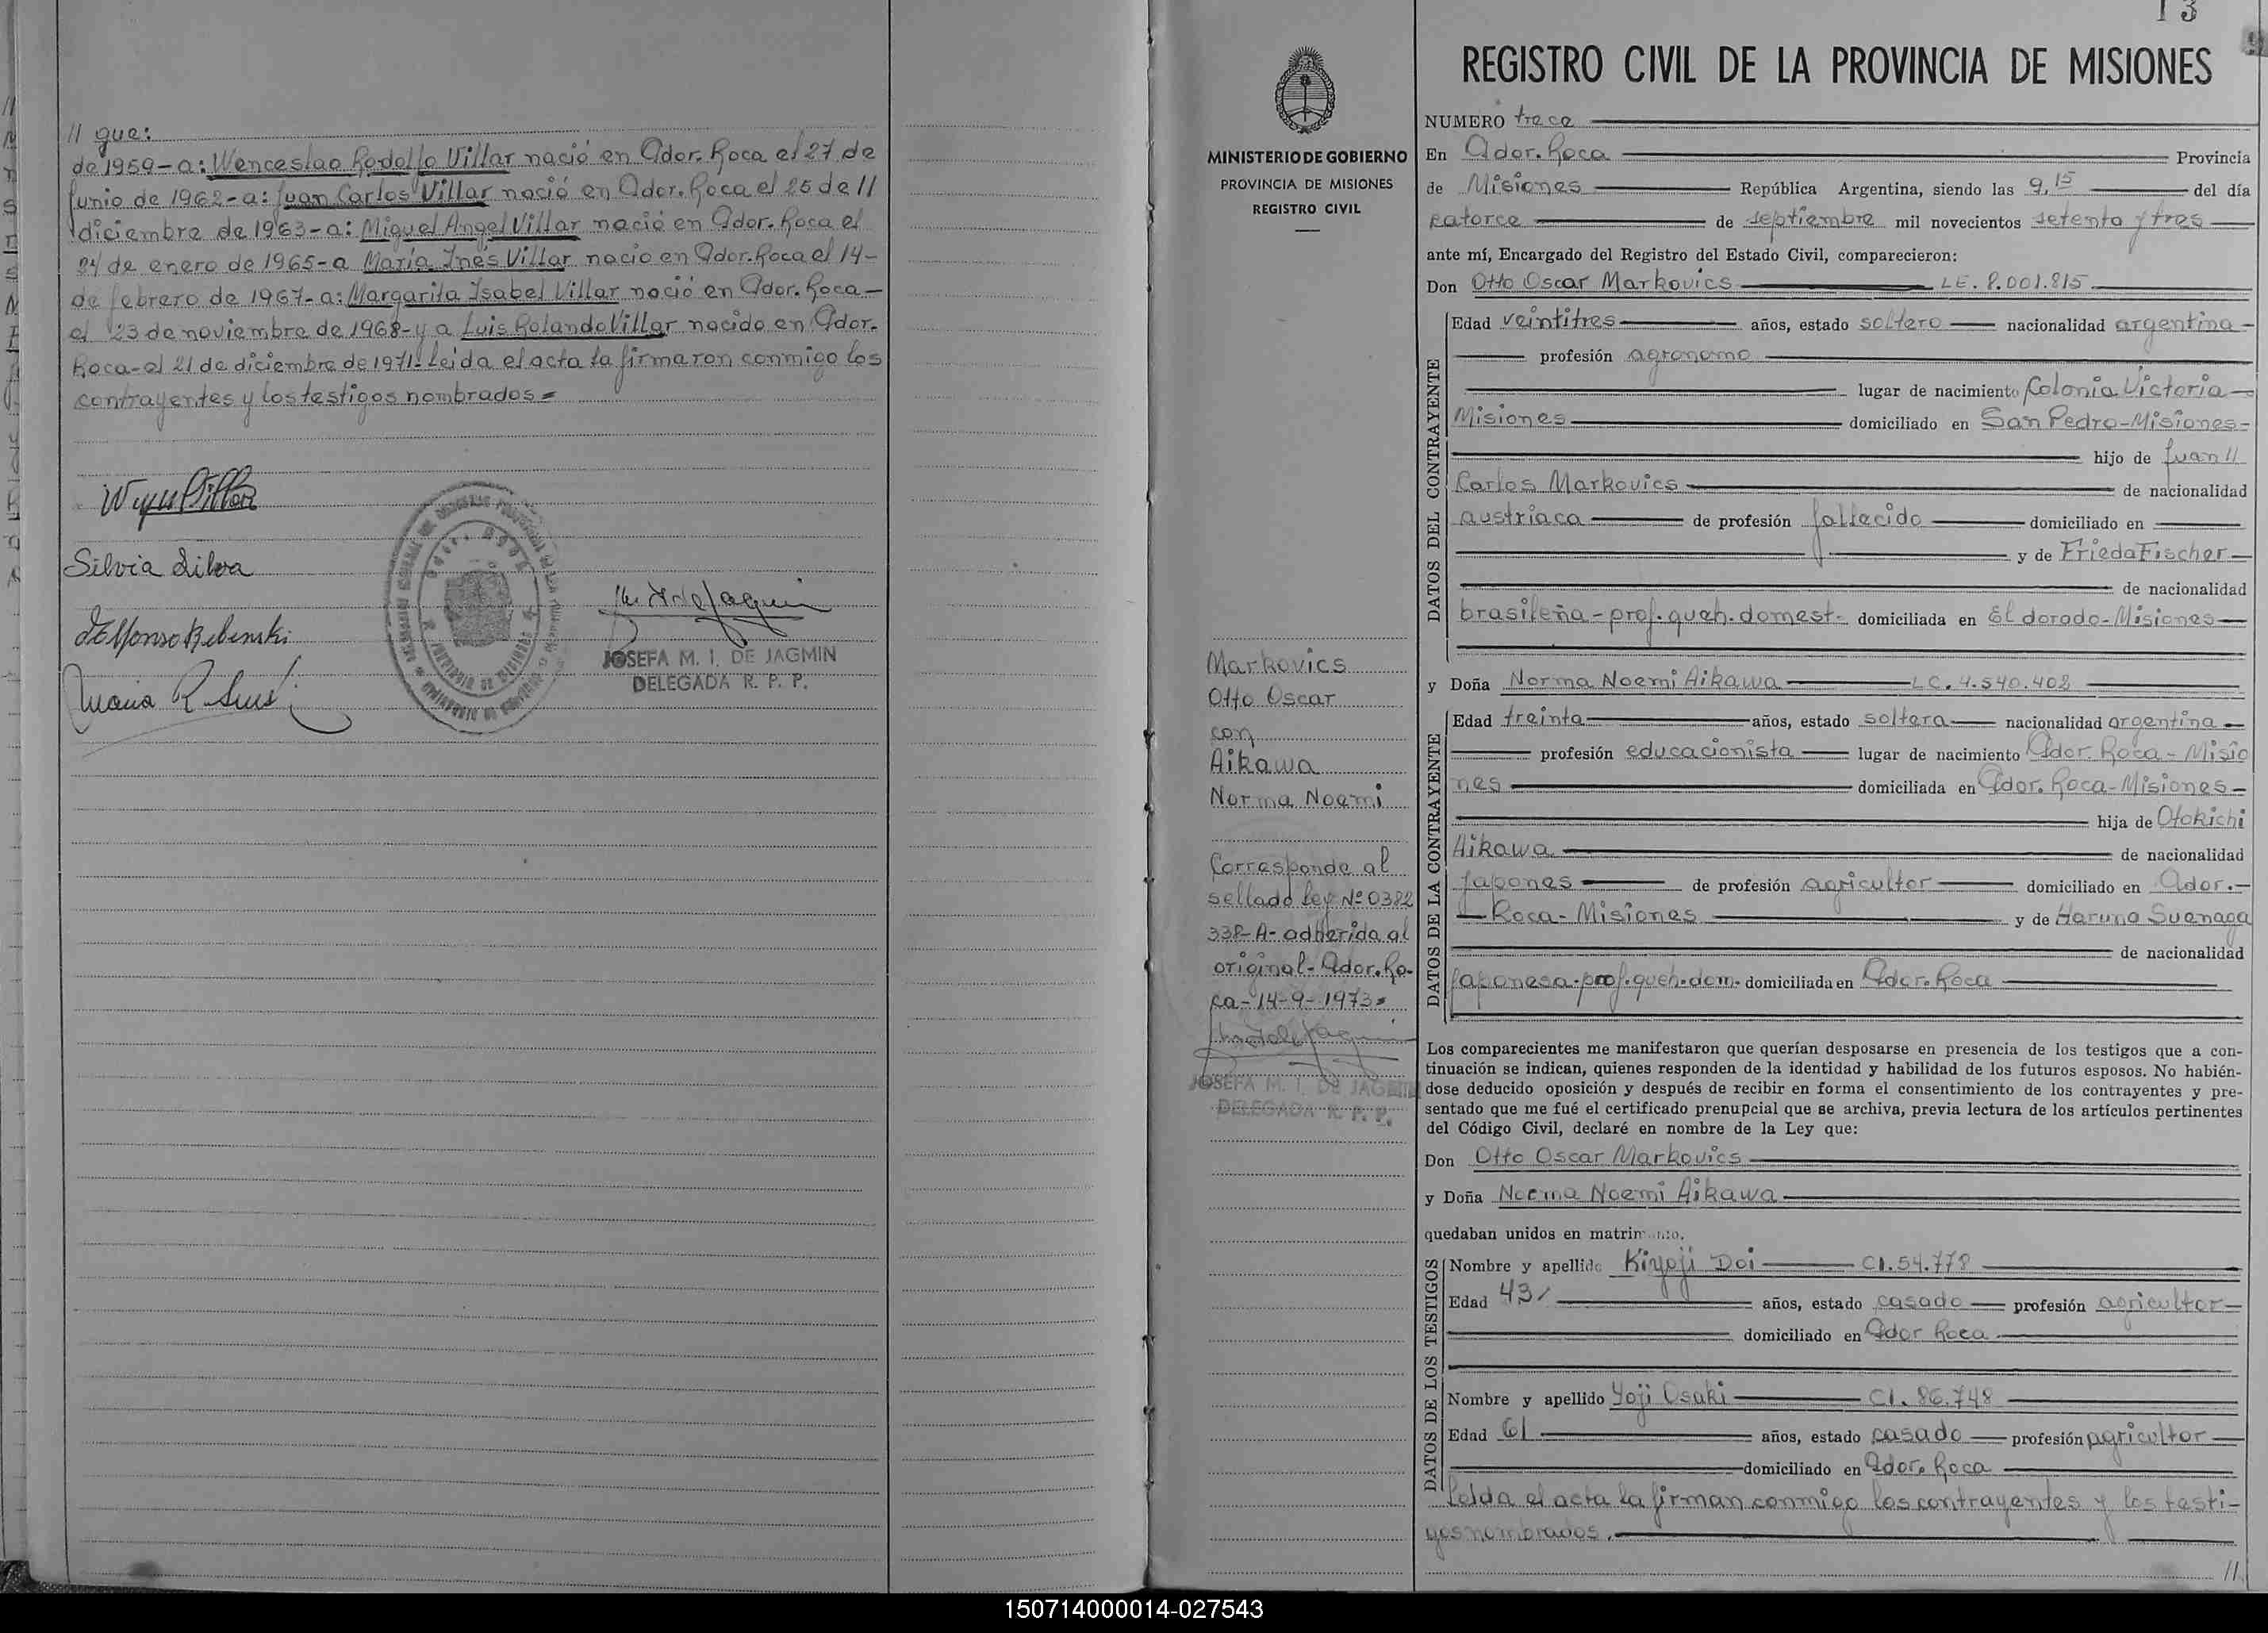 // gue:
de 1959-a: Wenceslao Rodolfo Villar nació en Gdor. Roca el 27 de
junio de 1962-a: Juan Carlos Villar nació en Gdor. Roca el 25 de //
diciembre de 1963-a: Miguel Angel Villar nació en Gdor. Roca el
24 de enero de 1965-a María Inés Villar nacio en Gdor. Roca el 14-
de febrero de 1967-a: Margarita Isabel Villar nació en Gdor. Roca-
el 23 de noviembre de 1968-y a Luis Rolando Villar nacido en Gdor.
Roca-el 21 de diciembre de 1971-Leida el acta la firmaron conmigo los
contrayentes y los testigos nombrados=
Silvia Silva
JOSEFA M. I. DE JAGMIN
DELEGADA R. P. P.
13
MINISTERIO DE GOBIERNO
PROVINCIA DE MISIONES
REGISTRO CIVIL
Markovics
Otto Oscar
con
Aikawa
Norma Noemi
Corresponde al
sellado Ley Nº 0382
338-A-adherida al
original-Gdor. Ro-
ca-14-9-1973=
JOSEFA M. I. DE JAGMIN
DELEGADA R. P. P.
REGISTRO CIVIL DE LA PROVINCIA DE MISIONES
NUMERO trece
En Gdor. Roca Provincia
de Misiones República Argentina, siendo las 9,15 del día
catorce de septiembre mil novecientos setenta y tres
ante mí, Encargado del Registro del Estado Civil, comparecieron:
Don Otto Oscar Markovics LE. 8.001.815
DATOS DEL CONTRAYENTE
Edad veintitres años, estado soltero nacionalidad argentina-
profesión agronomo
lugar de nacimiento Colonia Victoria-
Misiones domiciliado en San Pedro-Misiones-
hijo de Juan //
Carlos Markovics de nacionalidad
austriaca de profesión fallecido domiciliado en
y de Frieda Fischer
de nacionalidad
brasileña-prof. queh. domest- domiciliada en Eldorado-Misiones
y Doña Norma Noemi Aikawa LC. 4.540.402
DATOS DE LA CONTRAYENTE
Edad treinta años, estado soltera nacionalidad argentina-
profesión educacionista lugar de nacimiento Gdor. Roca-Misio
nes domiciliada en Gdor. Roca-Misiones-
hija de Otokichi
Aikawa de nacionalidad
Japones de profesión agricultor domiciliado en Gdor.-
Roca-Misiones y de Haruna Suenaga
de nacionalidad
Japonesa-prof. queh. dom- domiciliada en Gdor. Roca
Los comparecientes me manifestaron que querían desposarse en presencia de los testigos que a con-
tinuación se indican, quienes responden de la identidad y habilidad de los futuros esposos. No habién-
dose deducido oposición y después de recibir en forma el consentimiento de los contrayentes y pre-
sentado que me fué el certificado prenupcial que se archiva, previa lectura de los artículos pertinentes
del Código Civil, declaré en nombre de la Ley que:
Don Otto Oscar Markovics
y Doña Norma Noemi Aikawa
quedaban unidos en matrimonio.
DATOS DE LOS TESTIGOS
Nombre y apellido Kiyoji Doi CI. 54.778
Edad 43 años, estado casado profesión agricultor-
domiciliado en Gdor Roca
Nombre y apellido Yoji Osaki CI. 86.748
Edad 61 años, estado casado profesión agricultor
domiciliado en Gdor. Roca
Leida el acta la firman conmigo los contrayentes y los testi-
gos nombrados.
//
150714000014-027543